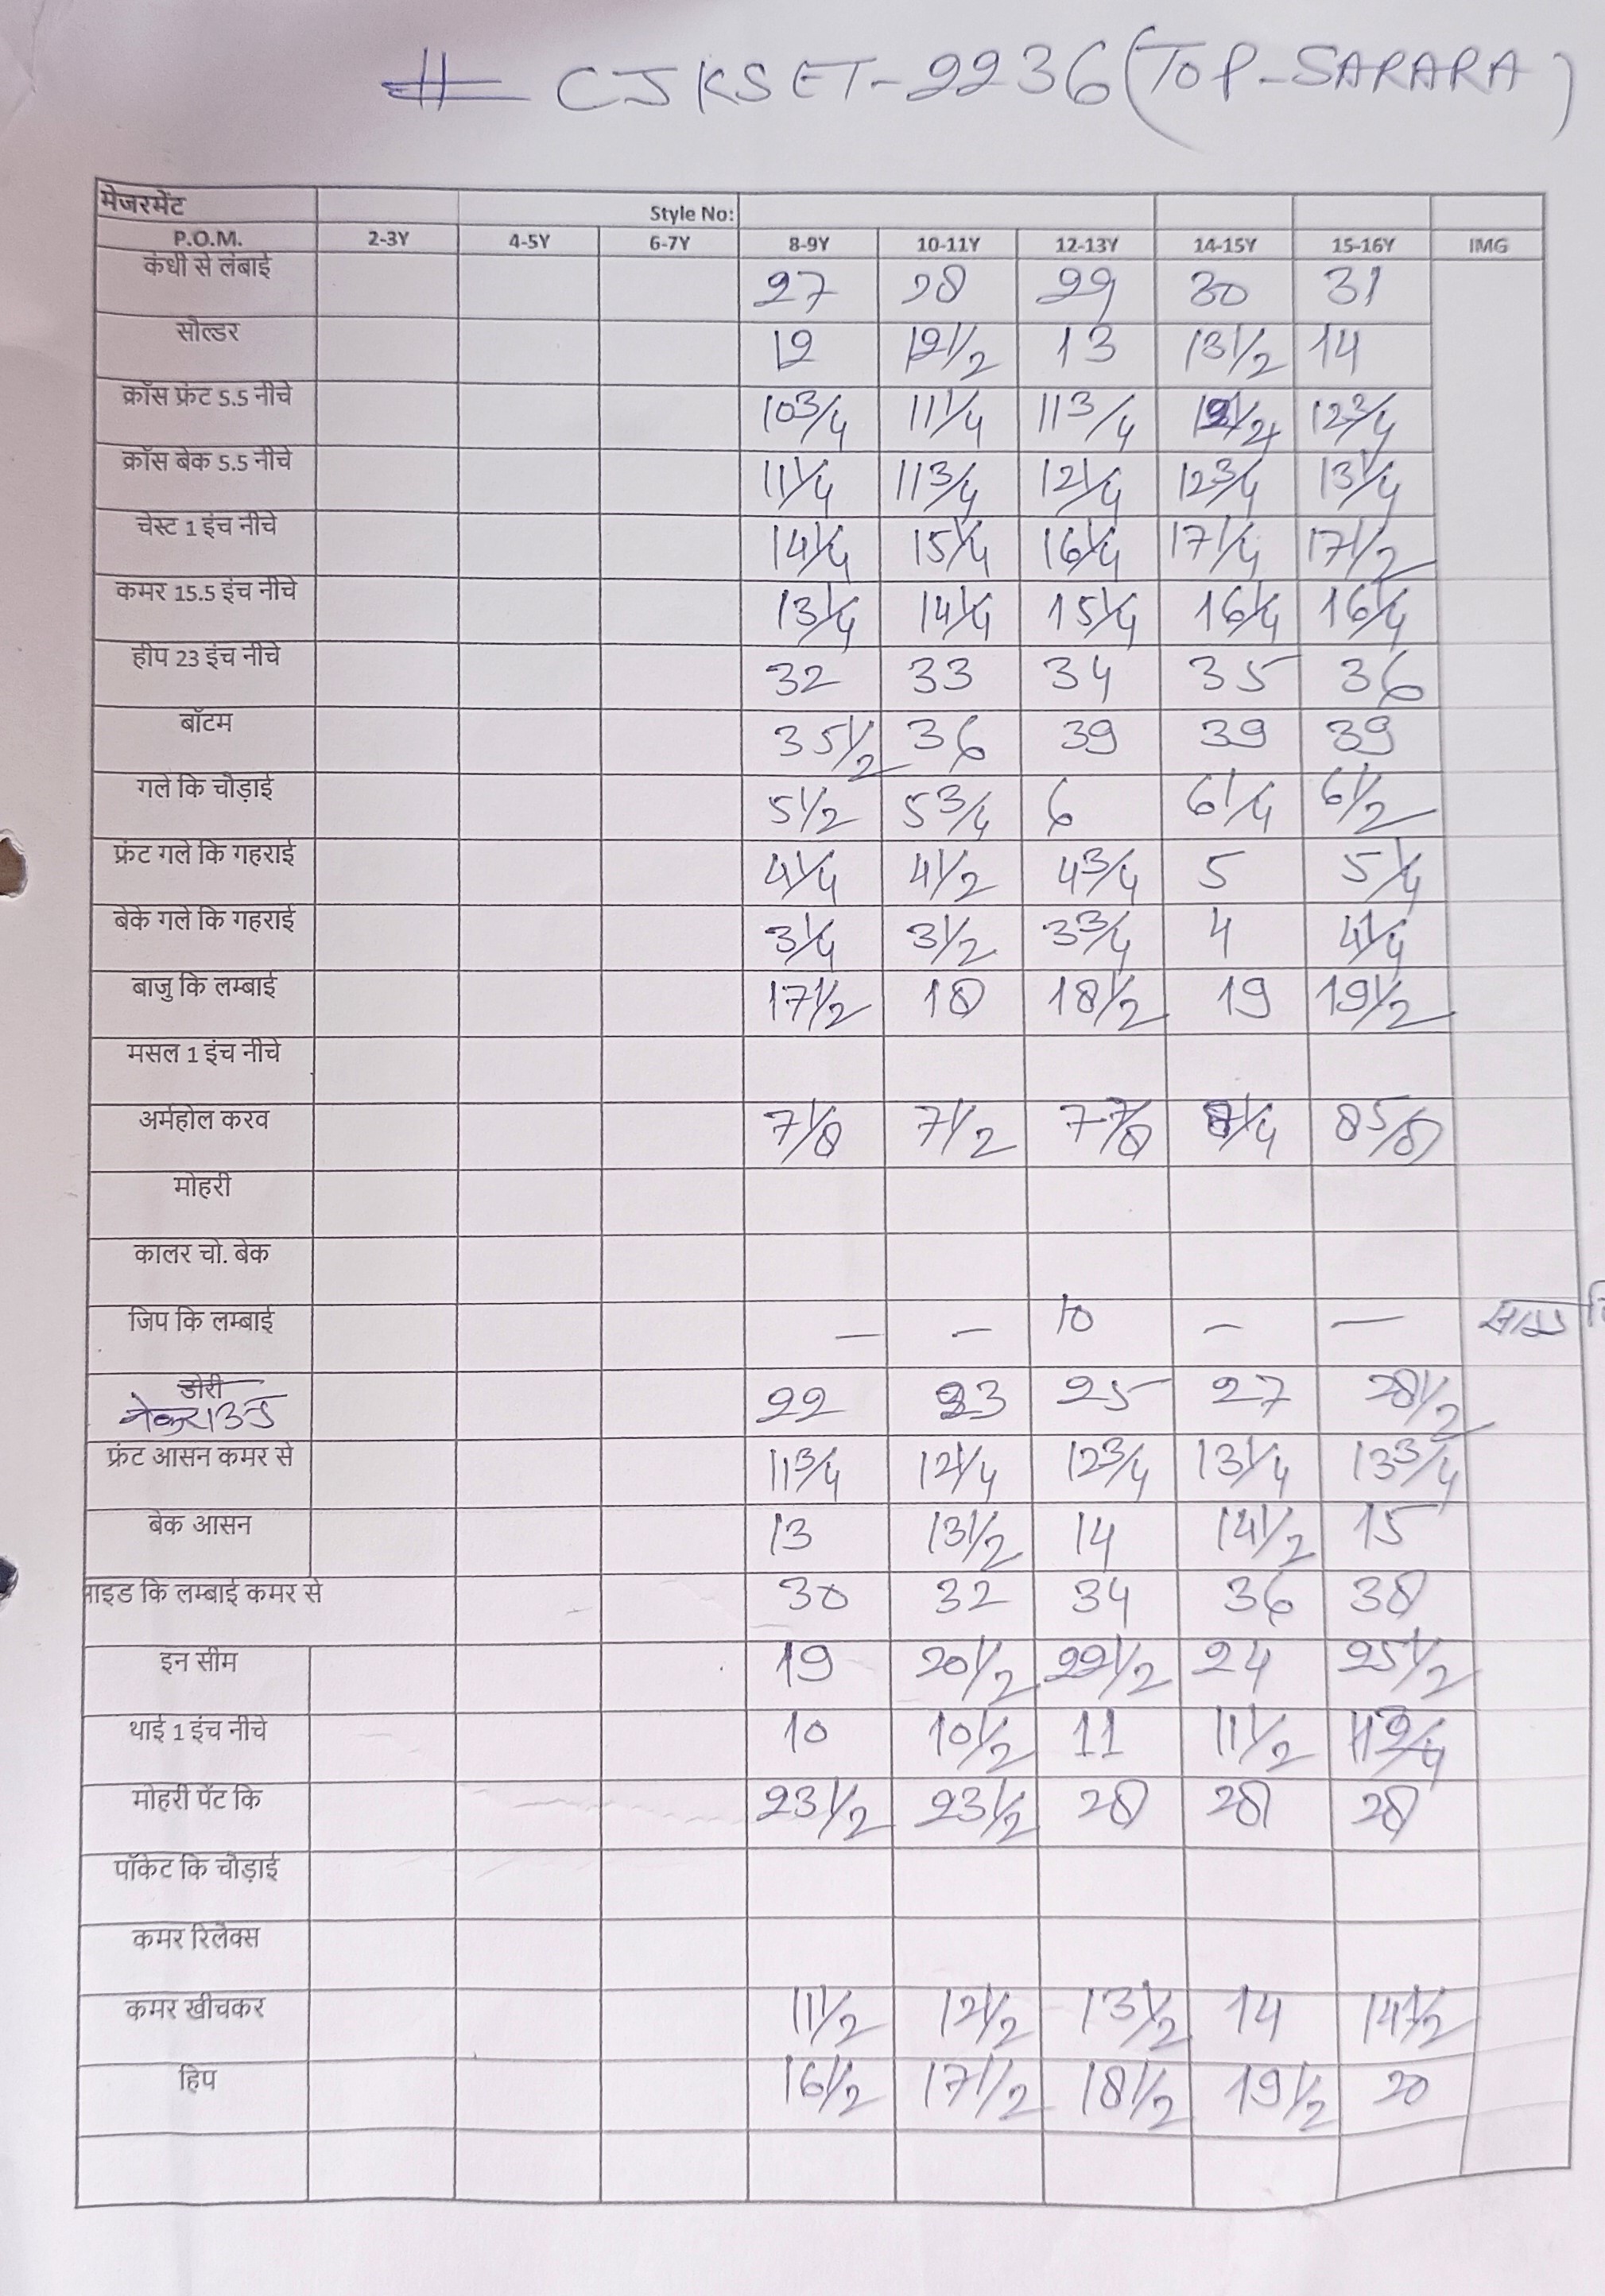 # CJKSET-2236 (TOP-SARARA)
मेजरमेंट Style No:
P.O.M. 2-3Y 4-5Y 6-7Y 8-9Y 10-11Y 12-13Y 14-15Y 15-16Y IMG
कंधी से लंबाई 27 28 29 30 31
सौल्डर 12 12 1/2 13 13 1/2 14
क्रॉस फ्रंट 5.5 नीचे 10 3/4 11 1/4 11 3/4 12 3/4
क्रॉस बेक 5.5 नीचे 11 1/4 11 3/4 12 1/4 12 3/4 13 1/4
चेस्ट 1 इंच नीचे 14 1/4 15 1/4 16 1/4 17 1/4 17 1/2
कमर 15.5 इंच नीचे 13 1/4 14 1/4 15 1/4 16 1/4 16 1/4
हीप 23 इंच नीचे 32 33 34 35 36
बॉटम 35 1/2 36 39 39 39
गले कि चौड़ाई 5 1/2 5 3/4 6 6 1/4 6 1/2
फ्रंट गले कि गहराई 4 1/4 4 1/2 4 3/4 5 5 1/4
बेके गले कि गहराई 3 1/4 3 1/2 3 3/4 4 4 1/4
बाजु कि लम्बाई 17 1/2 18 18 1/2 19 19 1/2
मसल 1 इंच नीचे
अर्महोल करव 7 1/8 7 1/2 7-7/8 8 1/4 8 5/8
मोहरी
कालर चो. बेक
जिप कि लम्बाई — — 10 — —
डोरी
नेकराउंड 22 23 25 27 28 1/2
फ्रंट आसन कमर से 11 3/4 12 1/4 12 3/4 13 1/4 13 3/4
बेक आसन 13 13 1/2 14 14 1/2 15
साइड कि लम्बाई कमर से 30 32 34 36 38
इन सीम 19 20 1/2 22 1/2 24 25 1/2
थाई 1 इंच नीचे 10 10 1/2 11 11 1/2
मोहरी पेंट कि 23 1/2 23 1/2 28 28 28
पॉकेट कि चौड़ाई
कमर रिलेक्स
कमर खीचकर 11 1/2 12 1/2 13 1/2 14 14 1/2
हिप 16 1/2 17 1/2 18 1/2 19 1/2 20